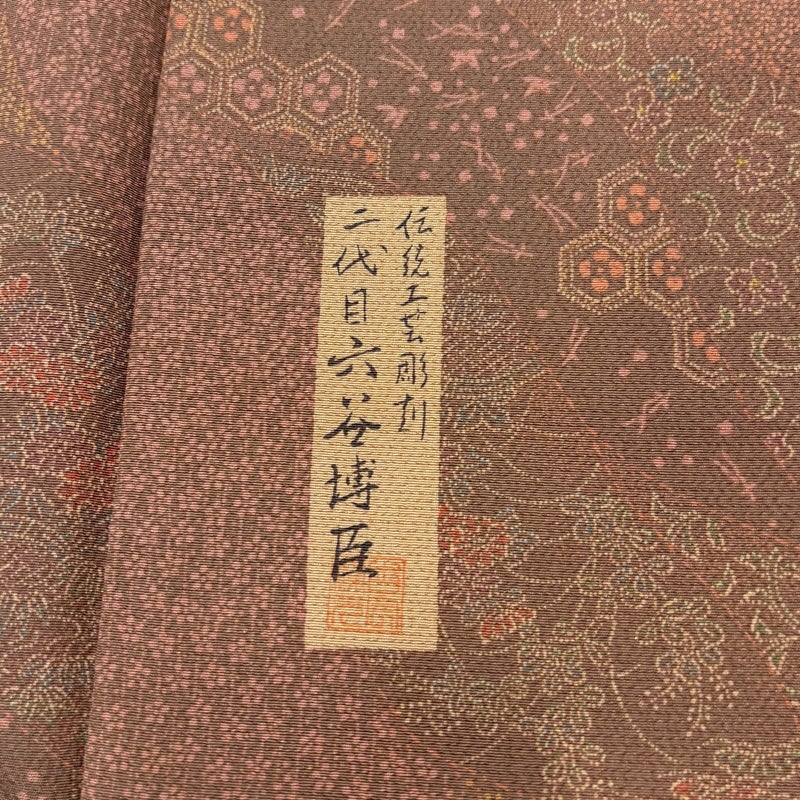 伝統工芸彫刻
二代目六谷博臣